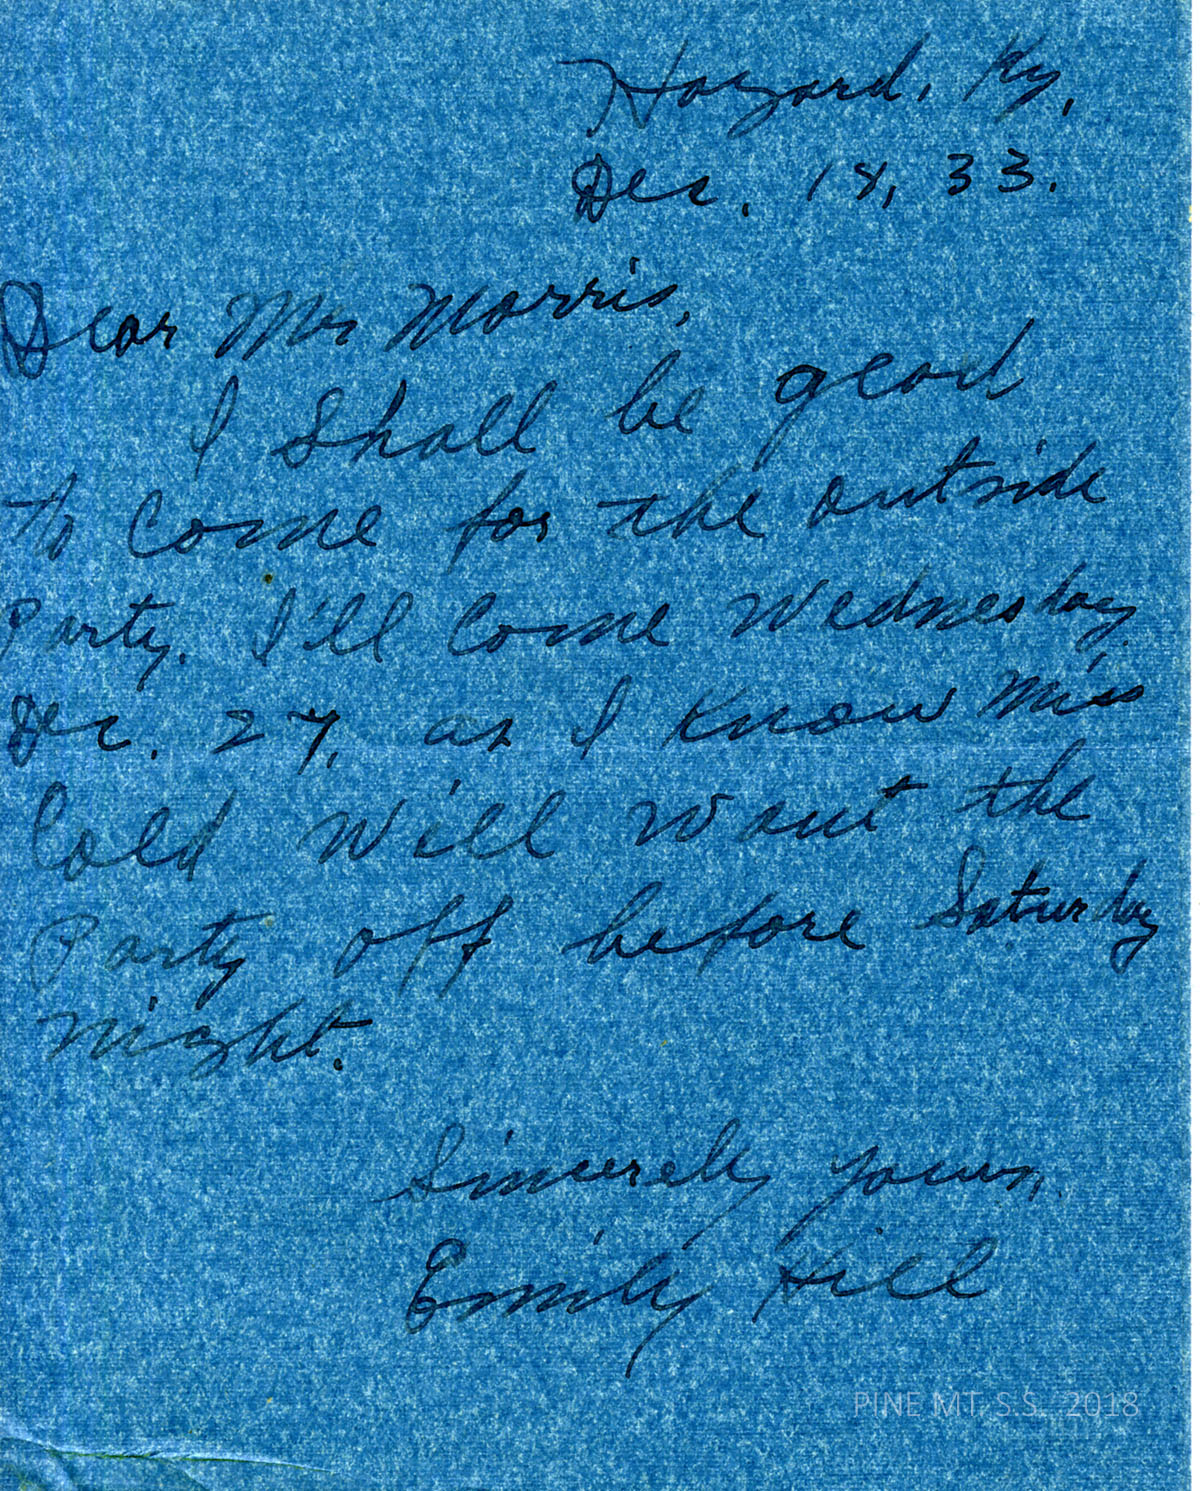 Hazard, Ky,
Dec. 18, 33.
Dear Mr Morris,
I shall be glad
to come for the outside
Party. I'll come Wednesday
Dec. 27, as I know Miss
Cold will want the
Party off before Saturday
night.
Sincerely yours,
Emily Hill
PINE MT. S.S. 2018